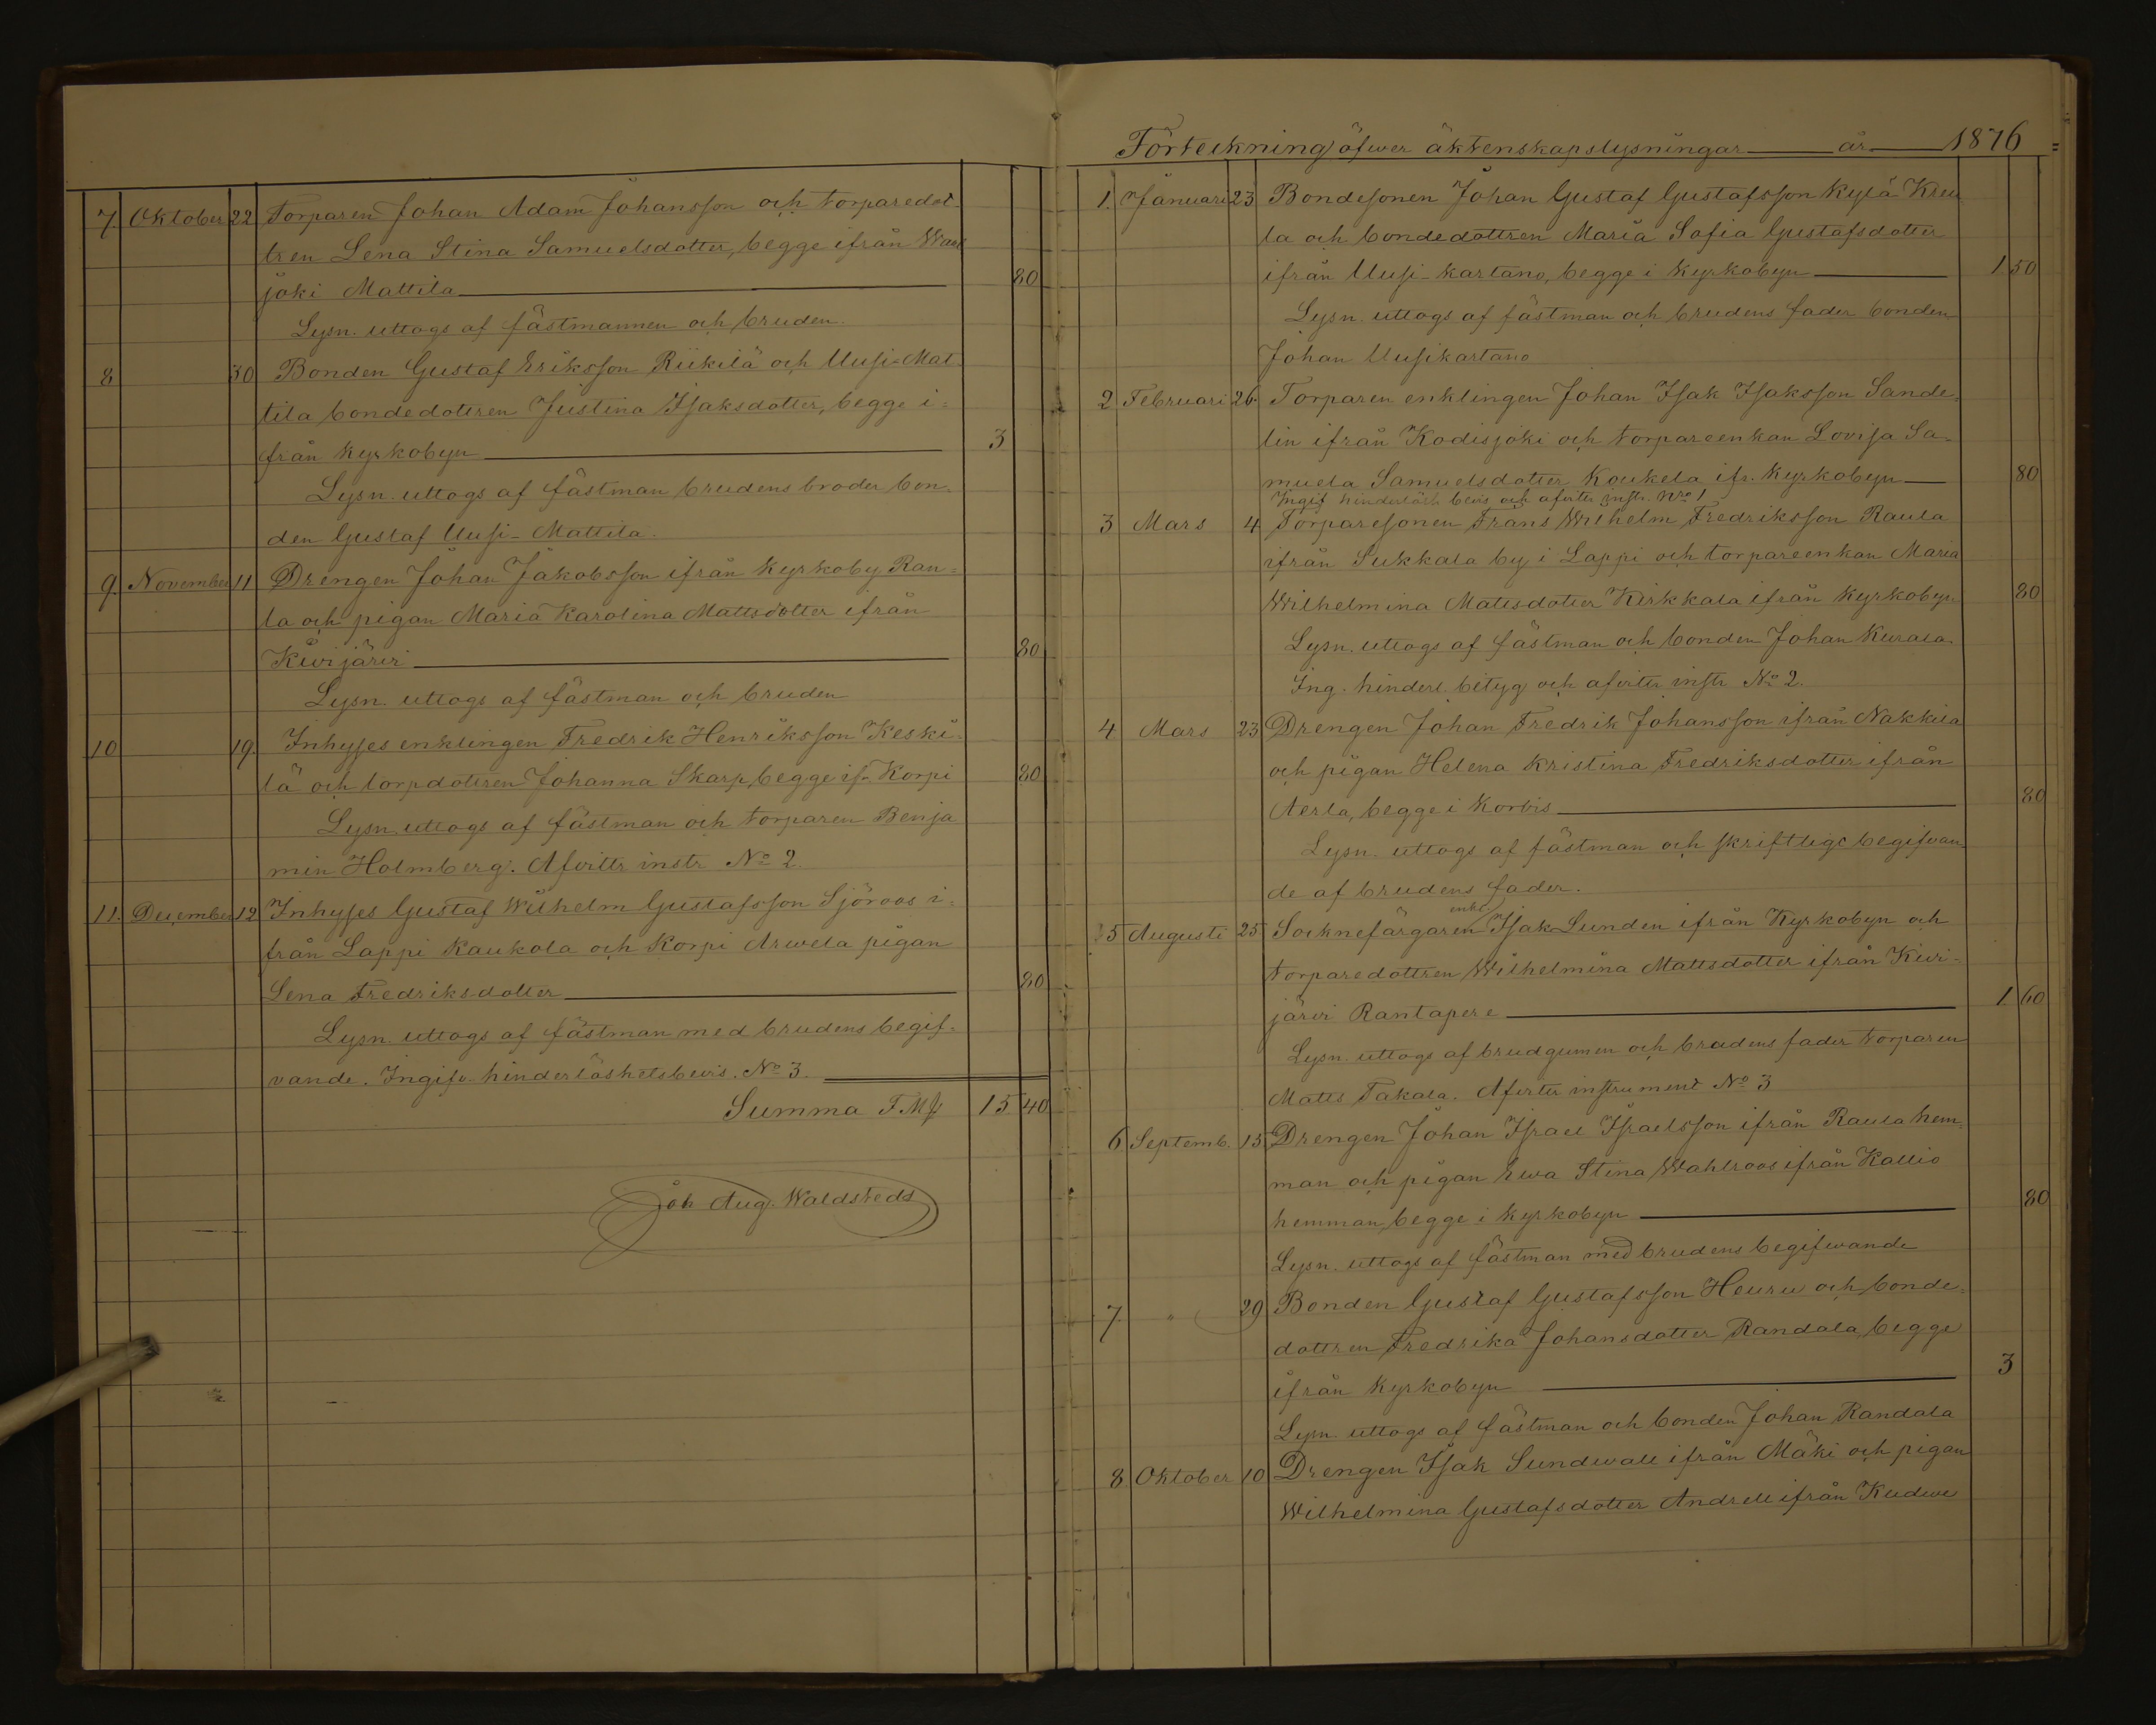 7. Oktober 22 Torparen Johan Adam Johansson och torparedot-
tren Lena Stina Samuelsdotter, begge ifrån
joki Mattila 80
Lysn. uttogs af fästmannen och bruden.
8 30 Bonden Gustaf Eriksson Riikilä och Uusi-Mat-
tila bondedottren Justina Isaksdotter, begge i-
från Kyrkobyn 3
Lysn. uttogs af fästman brudens broder bon-
den Gustaf Uusi-Mattila.
9. November 11 Drengen Johan Jakobsson ifrån Kyrkoby Ran-
la och pigan Maria Karolina Mattsdotter ifrån
Kivijärvi 80
Lysn. uttogs af fästman och bruden
10 19. Inhyses enklingen Fredrik Henriksson Keski-
lä och torpdottren Johanna Skarp, begge ifr. Korpi 80
Lysn. uttogs af fästman och torparen Benja
min Holmberg. Afvittr. instr. No 2.
11. December 12 Inhyses Gustaf Wilhelm Gustafsson Sjöroos i-
från Lappi Kaukola och Korpi Arwela pigan
Lena Fredriksdotter 80
Lysn. uttogs af fästman med brudens begif-
vande. Ingifv. hinderlöshetsbevis. No 3.
Summa F.Mk 15 40
Joh Aug. Waldsteds
Förteckning öfwer äktenskapslysningar år 1876
1. Januari 23 Bondesonen Johan Gustaf Gustafsson Kylä Kreu
la och bondedottren Maria Sofia Gustafsdotter
ifrån Uusi-Kartano, begge i Kyrkobyn 1 50
Lysn. uttogs af fästman och brudens fader bonden
Johan Uusikartano
2 Februari 26. Torparen enklingen Johan Isak Isaksson Sande-
lin ifrån Kodisjoki och torpareenkan Lovisa Sa-
muela Samuelsdotter Koukela ifr. Kyrkobyn 80
Ingif hinderlösh. bevis och afvittr. instr. Nro 1
3 Mars 4 Torparesonen Frans Wilhelm Fredriksson Raula
ifrån Sukkala by i Lappi och torpareenkan Maria
Wilhelmina Mattsdotter Kirkkala ifrån Kyrkobyn 80
Lysn. uttogs af fästman och bonden Johan Kurala.
Ing. hinderl. betyg och afvittr. instr No 2.
4 Mars 23 Drengen Johan Fredrik Johansson ifrån Nakkila
och pigan Helena Kristina Fredriksdotter ifrån
Aerla, begge i Korvis 80
Lysn. uttogs af fästman och skriftligt begifvan-
de af brudens fader.
enkl.
5 Augusti 25 Socknefärgaren Isak Lunden ifrån Kyrkobyn och
torparedottren Wilhelmina Mattsdotter ifrån Kivi-
järvi Rantapere 1 60
Lysn. uttogs af brudgumen och brudens fader torparen
Matts Takala. Afvittr instrument No 3
6 Septemb. 15 Drengen Johan Israel Israelsson ifrån Raula hem-
man och pigan Ewa Stina Wahlroos ifrån Kallio
hemman, begge i Kyrkobyn 80
Lysn. uttogs af fästman med brudens begifwande
7. " 29 Bonden Gustaf Gustafsson Heuru och bonde-
dottren Fredrika Johansdotter Randala, begge
ifrån Kyrkobyn 3
Lysn uttogs af fästman och bonden Johan Randala
8. Oktober 10 Drengen Isak Sundwall ifrån Mäki och pigan
Wilhelmina Gustafsdotter Andrell ifrån Kudwe